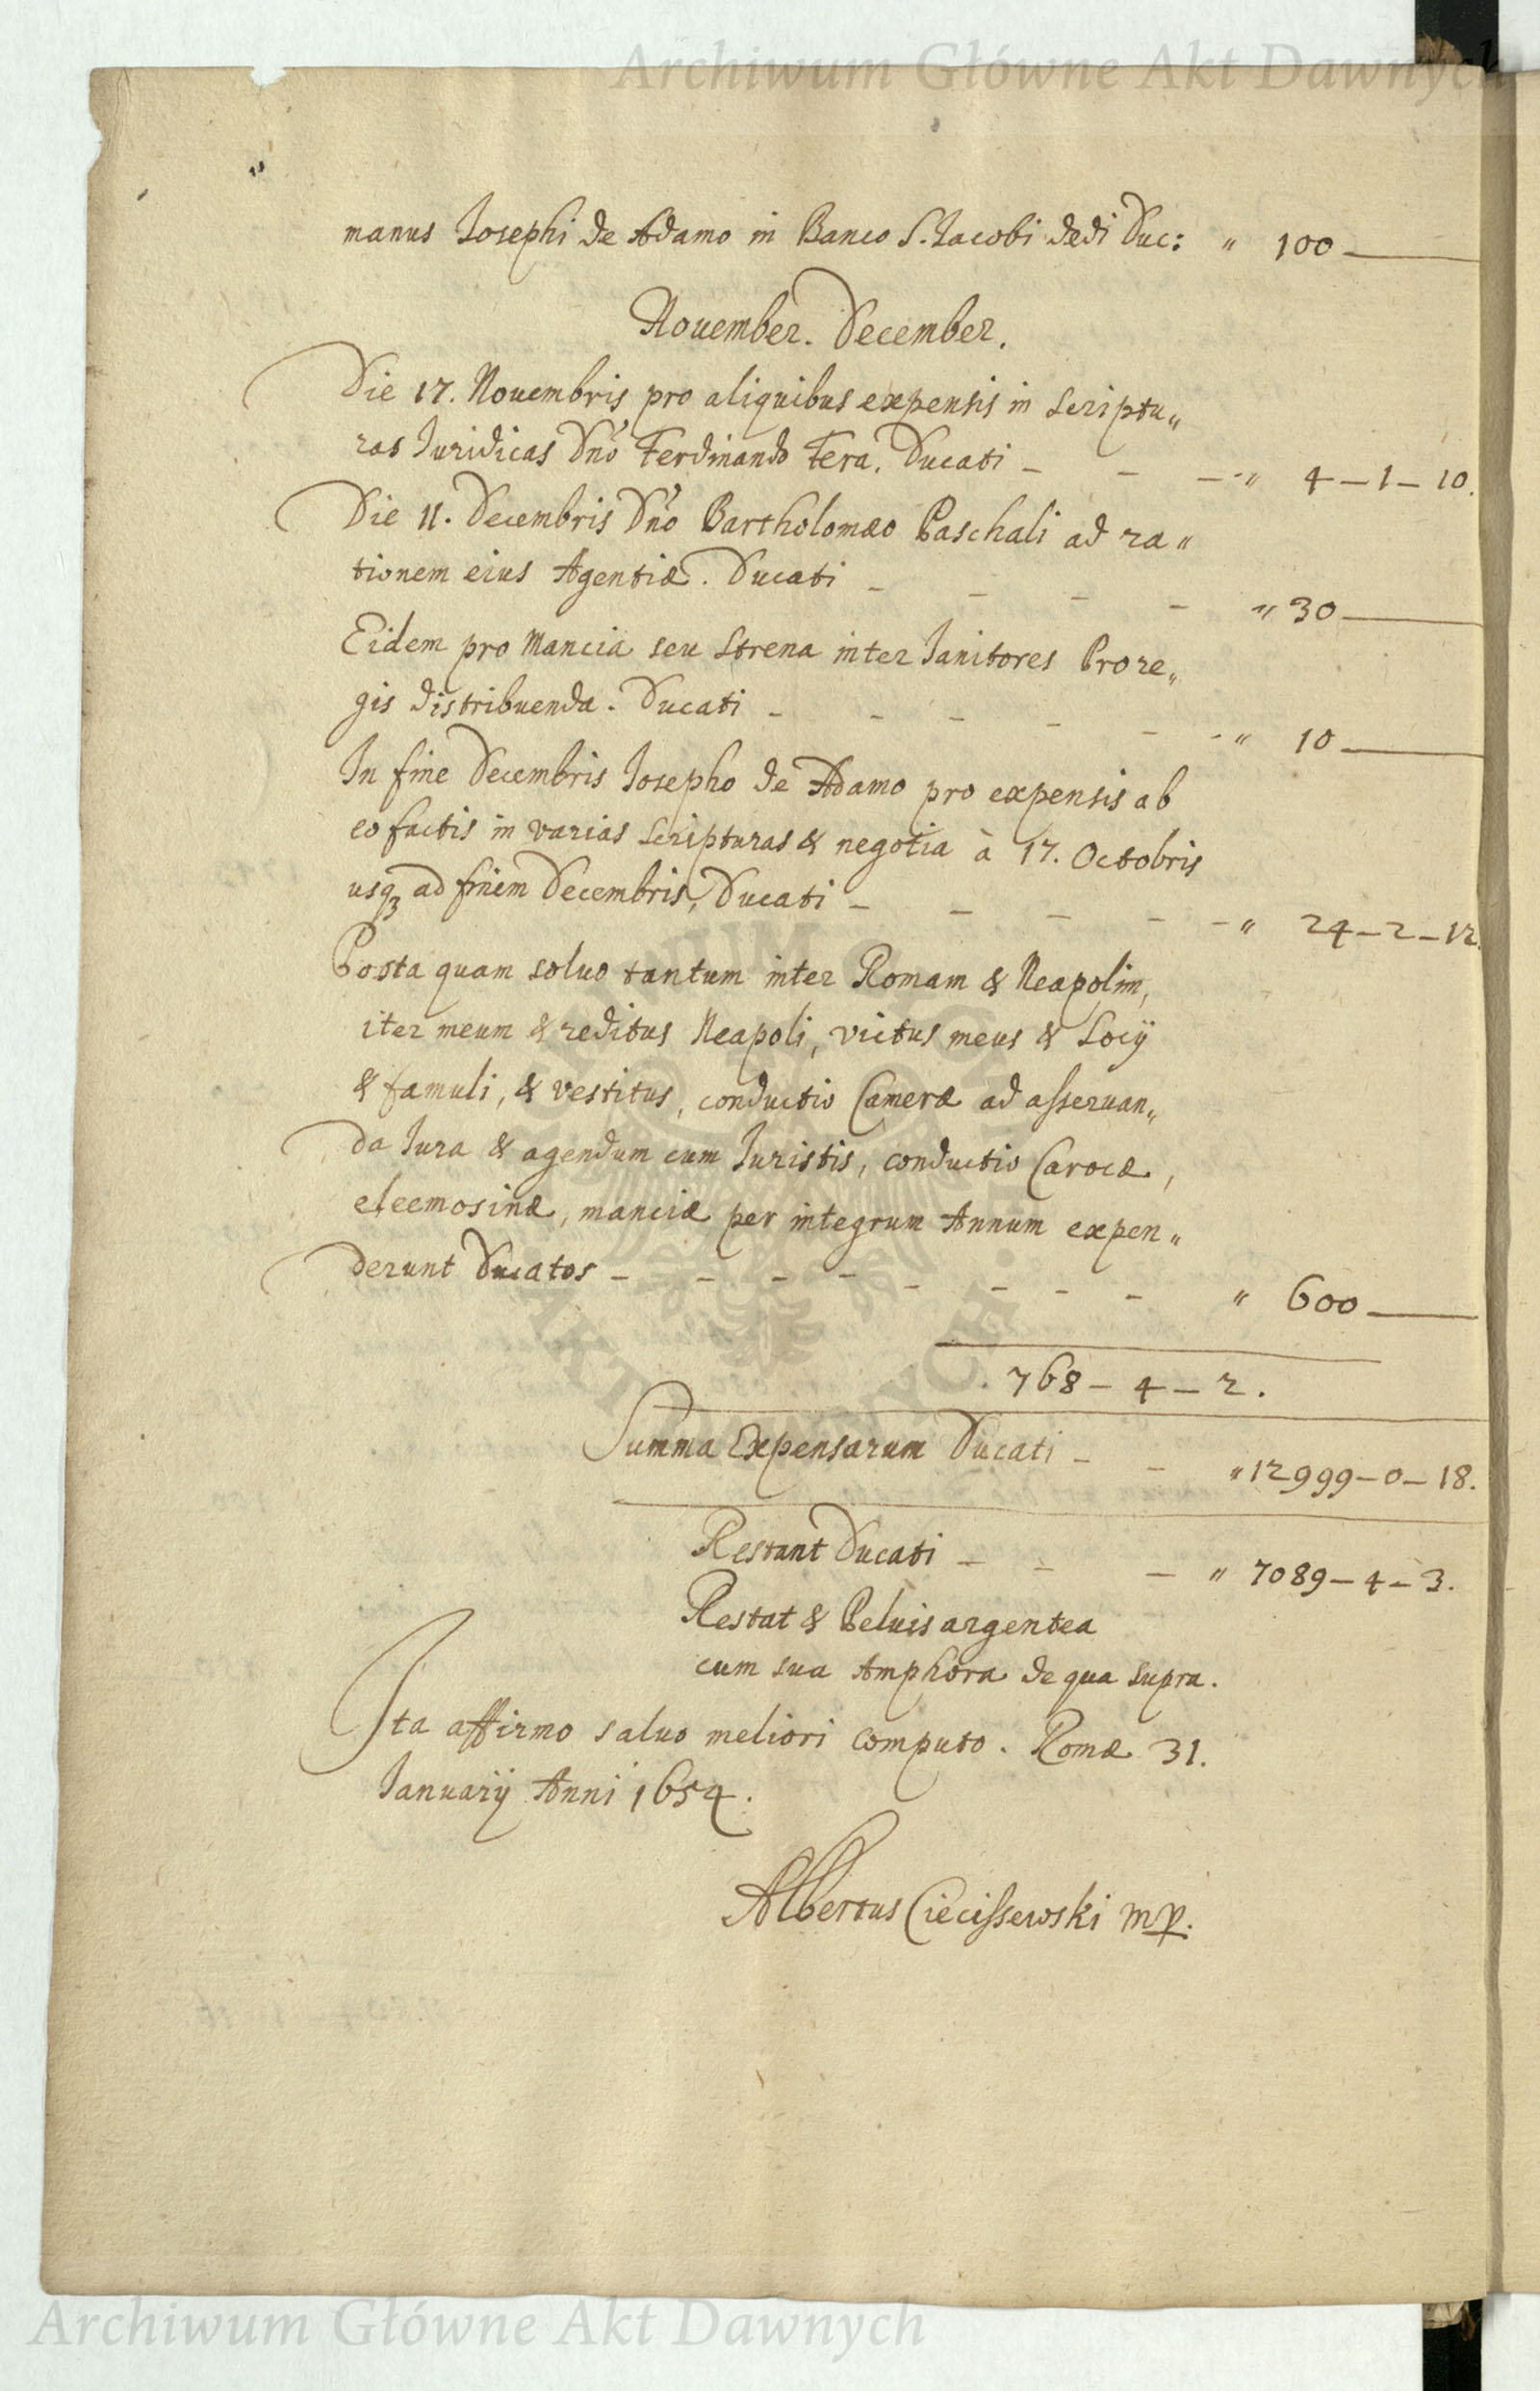 Archiwum Główne Akt Dawnych
manus Josephi de Adamo in Banco S. Jacobi dedi Duc: " 100 —
Nouember. December.
Die 17. Nouembris pro aliquibus expensis in scriptu„
ras Juridicas Dno Ferdinando Fera. Ducati - - - " 4 - 1 - 10.
Die 11. Decembris Dno Bartholomæo Paschali ad ra„
tionem eius Agentiæ. Ducati - - - - " 30 —
Eidem pro Mancia seu strena inter Janitores Prore„
gis distribuenda. Ducati - - - - - - " 10 —
In fine Decembris Josepho de Adamo pro expensis ab
eo factis in varias scripturas & negotia à 17. Octobris
usq3 ad finem Decembris, Ducati - - - - - " 24 - 2 - 12.
Posta quam soluo tantum inter Romam & Neapolim,
iter meum & reditus Neapoli, victus meus & Socÿ
& famuli, & vestitus, conductio Cameræ ad asseruan„
da Jura & agendum cum Juristis, conductio Carocæ,
eleemosinæ, manciæ per integrum Annum expen„
derunt Ducatos - - - - - - - - " 600 —
768 - 4 - 2.
Summa Expensarum Ducati - - " 12999 - 0 - 18.
Restant Ducati - - - " 7089 - 4 - 3.
Restat & Peluis argentea
cum sua Amphora de qua supra.
Ita affirmo saluo meliori computo. Romæ 31.
Januarÿ Anni 1654.
Albertus Ciecissewski mp.
Archiwum Główne Akt Dawnych